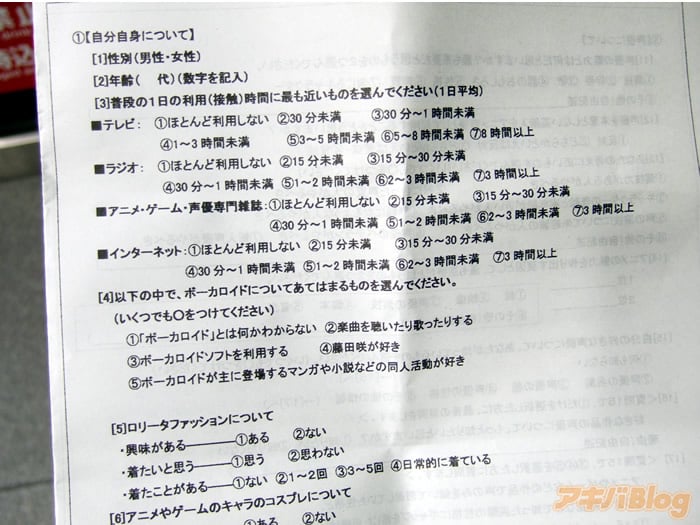 ①【自分自身について】
[1]性別(男性・女性)
[2]年齢(　代)(数字を記入)
[3]普段の1日の利用(接触)時間に最も近いものを選んでください(1日平均)
■テレビ: ①ほとんど利用しない ②30分未満 ③30分～1時間未満
④1～3時間未満 ⑤3～5時間未満 ⑥5～8時間未満 ⑦8時間以上
■ラジオ: ①ほとんど利用しない ②15分未満 ③15分～30分未満
④30分～1時間未満 ⑤1～2時間未満 ⑥2～3時間未満 ⑦3時間以上
■アニメ・ゲーム・声優専門雑誌:①ほとんど利用しない ②15分未満 ③15分～30分未満
④30分～1時間未満 ⑤1～2時間未満 ⑥2～3時間未満 ⑦3時間以上
■インターネット:①ほとんど利用しない ②15分未満 ③15分～30分未満
④30分～1時間未満 ⑤1～2時間未満 ⑥2～3時間未満 ⑦3時間以上
[4]以下の中で、ボーカロイドについてあてはまるものを選んでください。
(いくつでも〇をつけてください)
①「ボーカロイド」とは何かわからない ②楽曲を聴いたり歌ったりする
③ボーカロイドソフトを利用する ④藤田咲が好き
⑤ボーカロイドが主に登場するマンガや小説などの同人活動が好き
[5]ロリータファッションについて
・興味がある―――①ある ②ない
・着たいと思う―――①思う ②思わない
・着たことがある――①ない ②1～2回 ③3～5回 ④日常的に着ている
[6]アニメやゲームのキャラのコスプレについて
①ある ②ない
アキバBlog